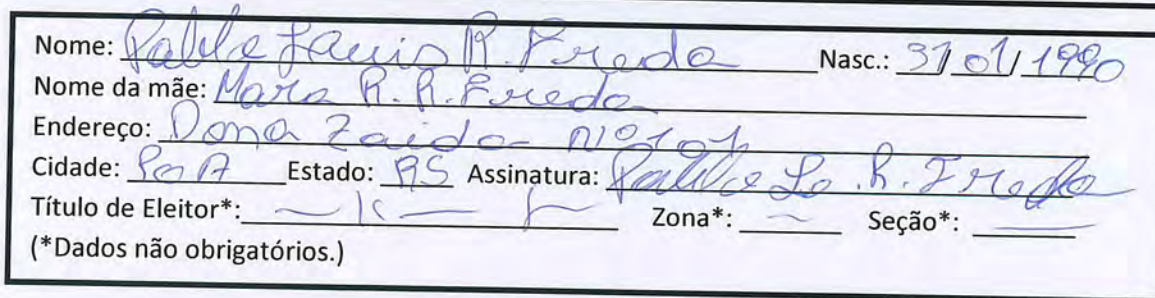 Nome: R. Freda Nasc.: 31/01/1990
Nome da mãe: Mara R. R. Freda
Endereço: Dona Zaida Nº 101
Cidade: PoA Estado: RS Assinatura: R. Freda
Título de Eleitor*: Zona*: Seção*:
(*Dados não obrigatórios.)